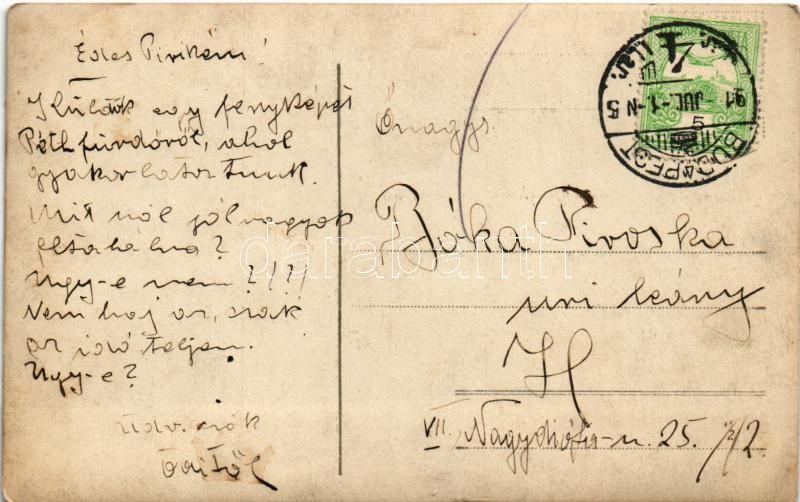 Édes Pirikém!
Küldök egy fényképet
Páthfürdőről, ahol
gyakorlatoztunk.
jól vagyok
eltalálva?
Ugy-e nem?!?!
Nem baj az, csak
az idő teljen.
Ugy-e?
Üdv. sok
Önagys.
Bóka Piroska
uri leány
H
VII. Nagydiófa-u. 25. II/2.
BUDAPEST
JUL.-1.-N 5
5
darabanth